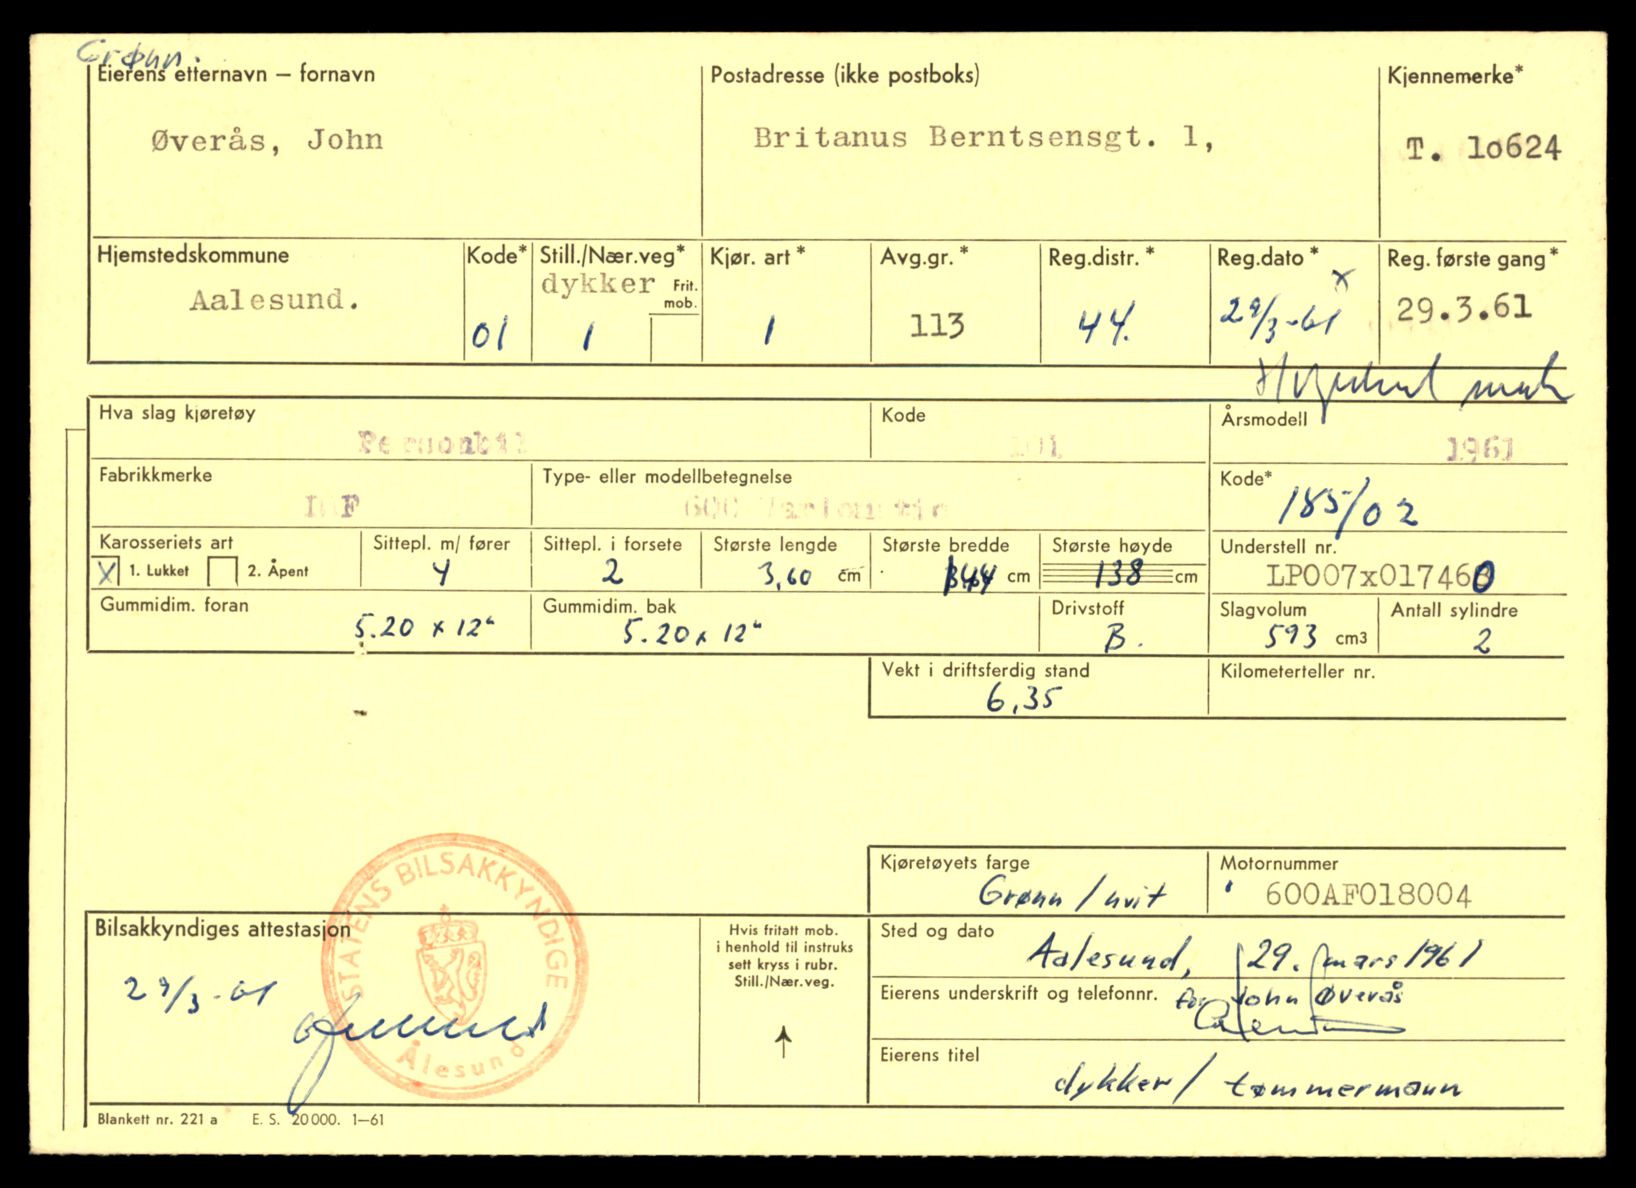 Grønn.
Eierens etternavn – fornavn
Øverås, John
Postadresse (ikke postboks)
Britanus Berntsensgt. 1,
Kjennemerke*
T. 1o624
Hjemstedskommune
Aalesund.
Kode*
01
Still./Nær.veg*
dykker
Frit.
mob.
1
Kjør. art*
1
Avg.gr.*
113
Reg.distr.*
44.
Reg.dato*
x
29/3-61
Reg. første gang*
29.3.61
Hva slag kjøretøy
Personbil
Kode
101
Årsmodell
1961
Fabrikkmerke
DAF
Type- eller modellbetegnelse
600 Variomatic
Kode*
185/02
Karosseriets art
X 1. Lukket 2. Åpent
Sittepl. m/ fører
4
Sittepl. i forsete
2
Største lengde
3,60 cm
Største bredde
144 cm
Største høyde
138 cm
Understell nr.
LP007x017460
Gummidim. foran
5.20 x 12"
Gummidim. bak
5.20 x 12"
Drivstoff
B.
Slagvolum
593 cm3
Antall sylindre
2
Vekt i driftsferdig stand
6,35
Kilometerteller nr.
Kjøretøyets farge
Grønn / hvit
Motornummer
600AF018004
Bilsakkyndiges attestasjon
29/3-61
STATENS BILSAKKYNDIGE
Ålesund
Hvis fritatt mob.
i henhold til instruks
sett kryss i rubr.
Still./Nær.veg.
Sted og dato
Aalesund, 29. mars 1961
Eierens underskrift og telefonnr.
for John Øverås
Eierens titel
dykker / tømmermann
Blankett nr. 221 a E. S. 20000. 1–61